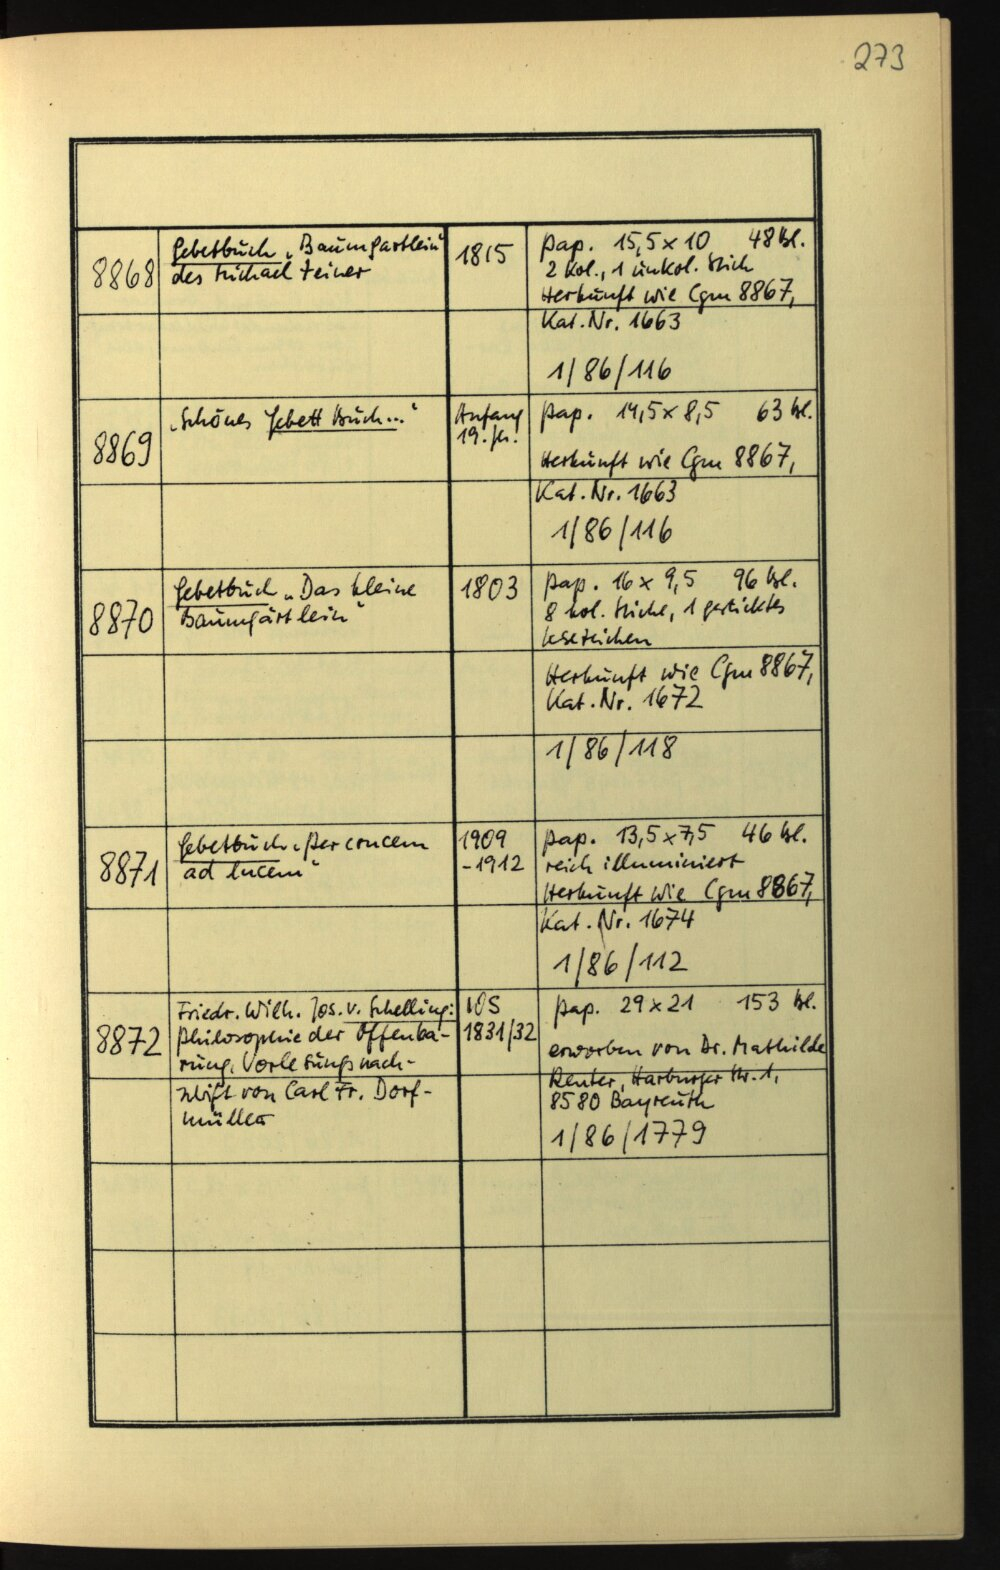 273
8868
Gebetbuch „Baumgartlein"
des Michael Zeiner
1815
Pap. 15,5 x 10 48 Bl.
2 kol., 1 unkol. Stich
Herkunft wie Cgm 8867,
Kat. Nr. 1663
1/86/116
8869
„Schönes Gebett Buch..."
Anfang
19. Jh.
Pap. 14,5 x 8,5 63 Bl.
Herkunft wie Cgm 8867,
Kat. Nr. 1663
1/86/116
8870
Gebetbuch „Das kleine
Baumgärtlein"
1803
Pap. 16 x 9,5 96 Bl.
8 kol. Stiche, 1 gesticktes
Lesezeichen
Herkunft wie Cgm 8867,
Kat. Nr. 1672
1/86/118
8871
Gebetbuch „Per crucem
ad lucem"
1909
-1912
Pap. 13,5 x 7,5 46 Bl.
reich illuminiert
Herkunft wie Cgm 8867,
Kat. Nr. 1674
1/86/112
8872
Friedr. Wilh. Jos. v. Schelling:
Philosophie der Offenba-
rung, Vorlesungsnach-
schrift von Carl Fr. Dorf-
müller
WS
1831/32
Pap. 29 x 21 153 Bl.
erworben von Dr. Mathilde
Reuter, Harburger Str. 1,
8580 Bayreuth
1/86/1779